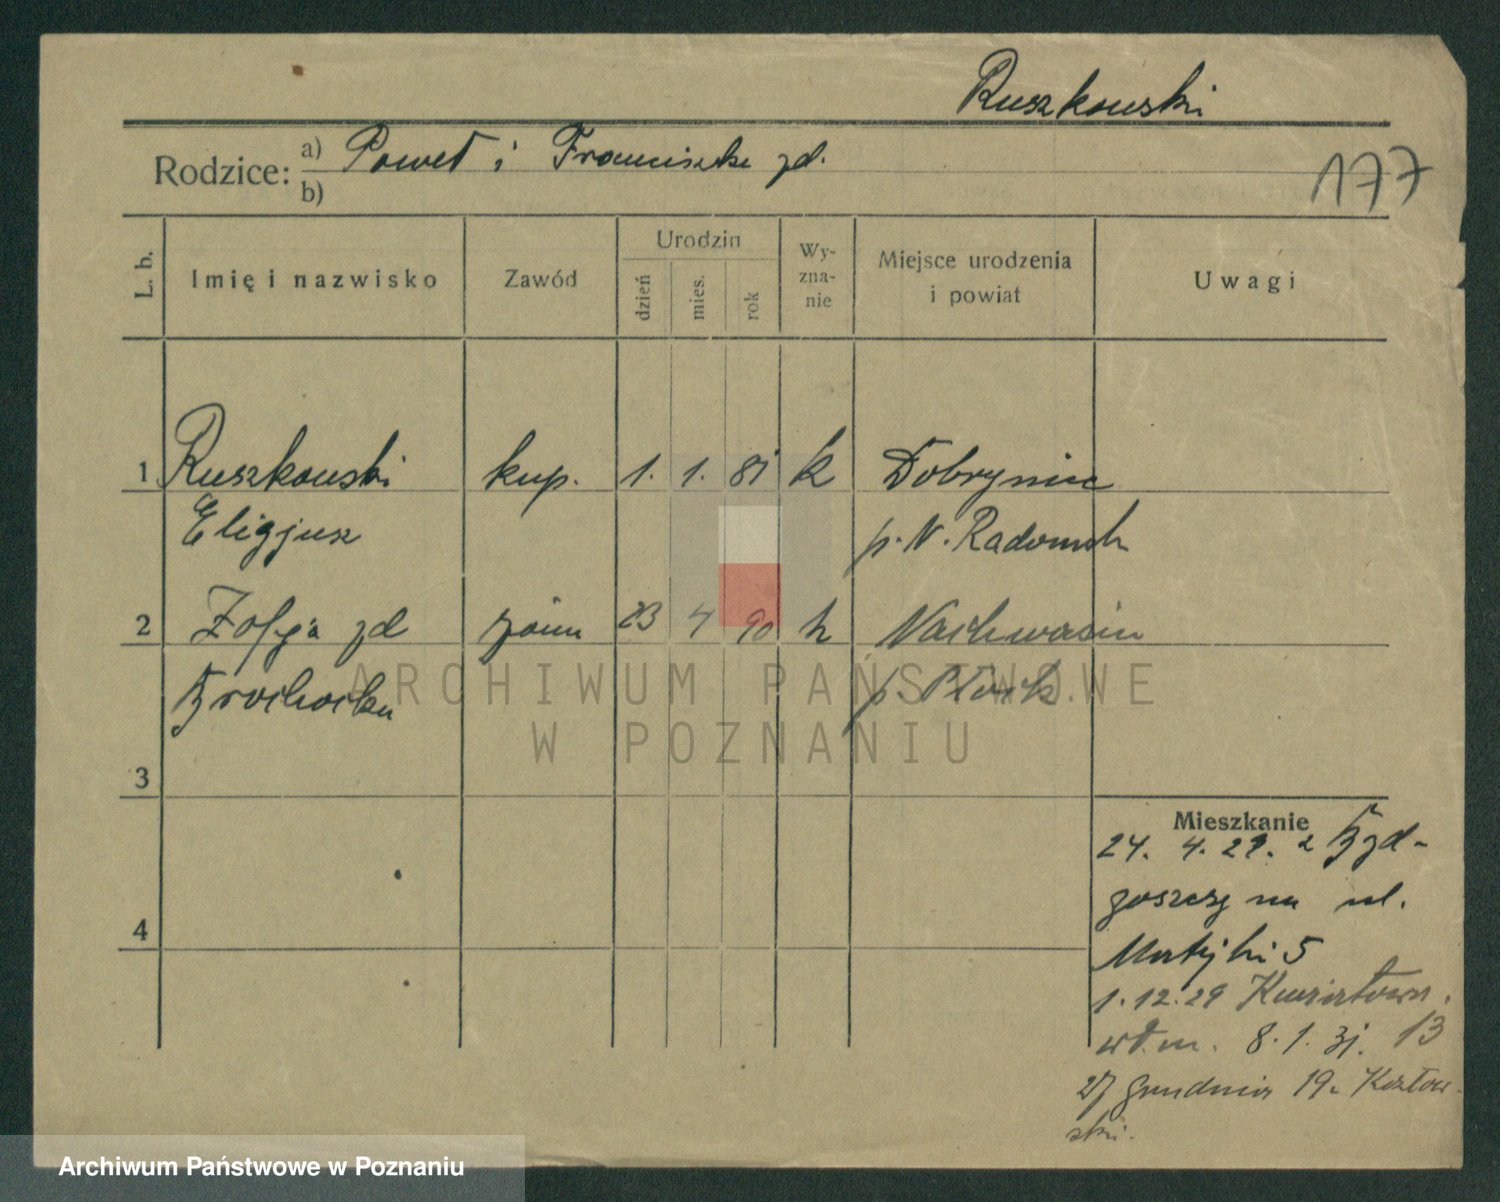 Ruszkowski
Rodzice: a) Paweł i Franciszka zd.
b)
177
L. b. Imię i nazwisko Zawód Urodzin dzień mies. rok Wy-zna-nie Miejsce urodzenia i powiat Uwagi
1 Ruszkowski kup. 1. 1. 81 k
Eligjusz p. N. Radomsk
2 Zofja zd żona 23 4 90 k
Brochocka p. Płock
3
4
Mieszkanie
24. 4. 29. z Byd-
goszczy na ul.
Matejki 5
1. 12. 29
wł. m. 8. 1. 31. 13
27 Grudnia 19
ski.
ARCHIWUM PAŃSTWOWE
W POZNANIU
Archiwum Państwowe w Poznaniu